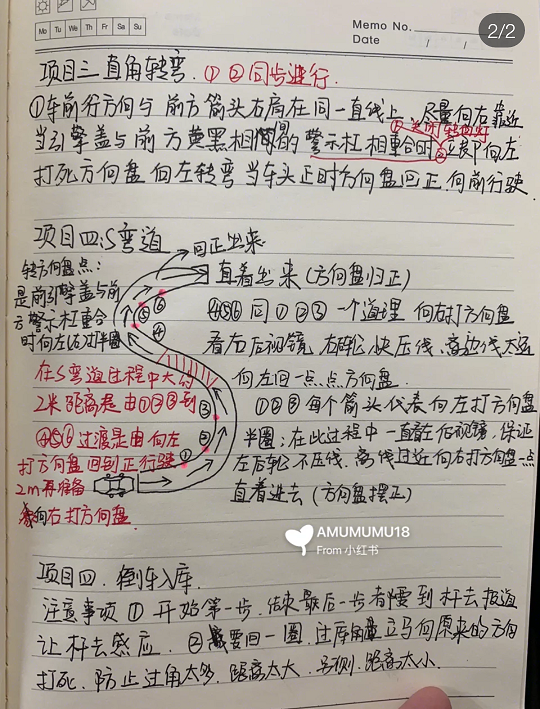 Memo No.
Mo Tu We Th Fr Sa Su
Date / /
2/2
项目三 直角转弯. ①②同步进行.
①车前行方向与前方箭头右肩在同一直线上 尽量向右靠近
①关闭转向灯
当引擎盖与前方黄黑相间的警示杠相重合时②立即向左
打死方向盘 向左转弯 当车头正时方向盘回正.向前行驶.
项目四:S弯道
回正出来
转方向盘点:
是前引擎盖与前
方警示杠重合
时向左(右)打半圈
直着出来(方向盘归正)
④⑤⑥同①②③一个道理 向右打方向盘
看右后视镜 右轮快压线、离边线太近
向左回一点点方向盘.
⑥
⑤
④
在S弯道过程中大约
2米距离是由①②③到
④⑤⑥过渡是由向左
打方向盘回到正行驶
2m再准备
向右打方向盘.
③
②
①
①②③每个箭头代表向左打方向盘
半圈:在此过程中一直看左后视镜,保证
左后轮不压线.离线过近向右打方向盘一点
直着进去(方向盘摆正)
AMUMUMU18
From 小红书
项目四. 倒车入库.
注意事项 ① 开始第一步.结束最后一步者都要到杆去报道
让杆去感应. ②需要回一圈,过库角立马向原来的方向
打死.防止过角太多.距离太大.否则.距离太小.